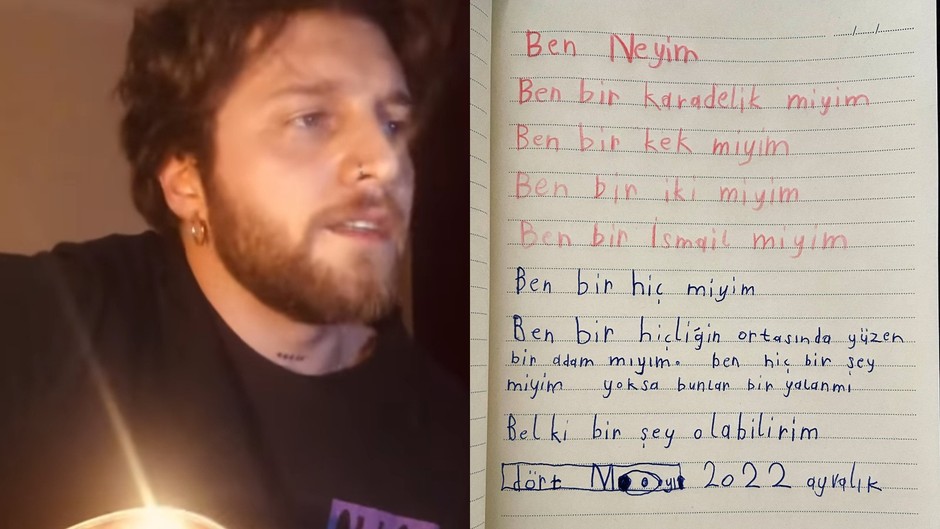 Ben Neyim
Ben bir karadelik miyim
Ben bir kek miyim
Ben bir iki miyim
Ben bir İsmail miyim
Ben bir hiç miyim
Ben bir hiçliğin ortasında yüzen
bir adam mıyım. ben hiç bir şey
miyim yoksa bunlar bir yalanmı
Belki bir şey olabilirim
dört 2022 ayralık